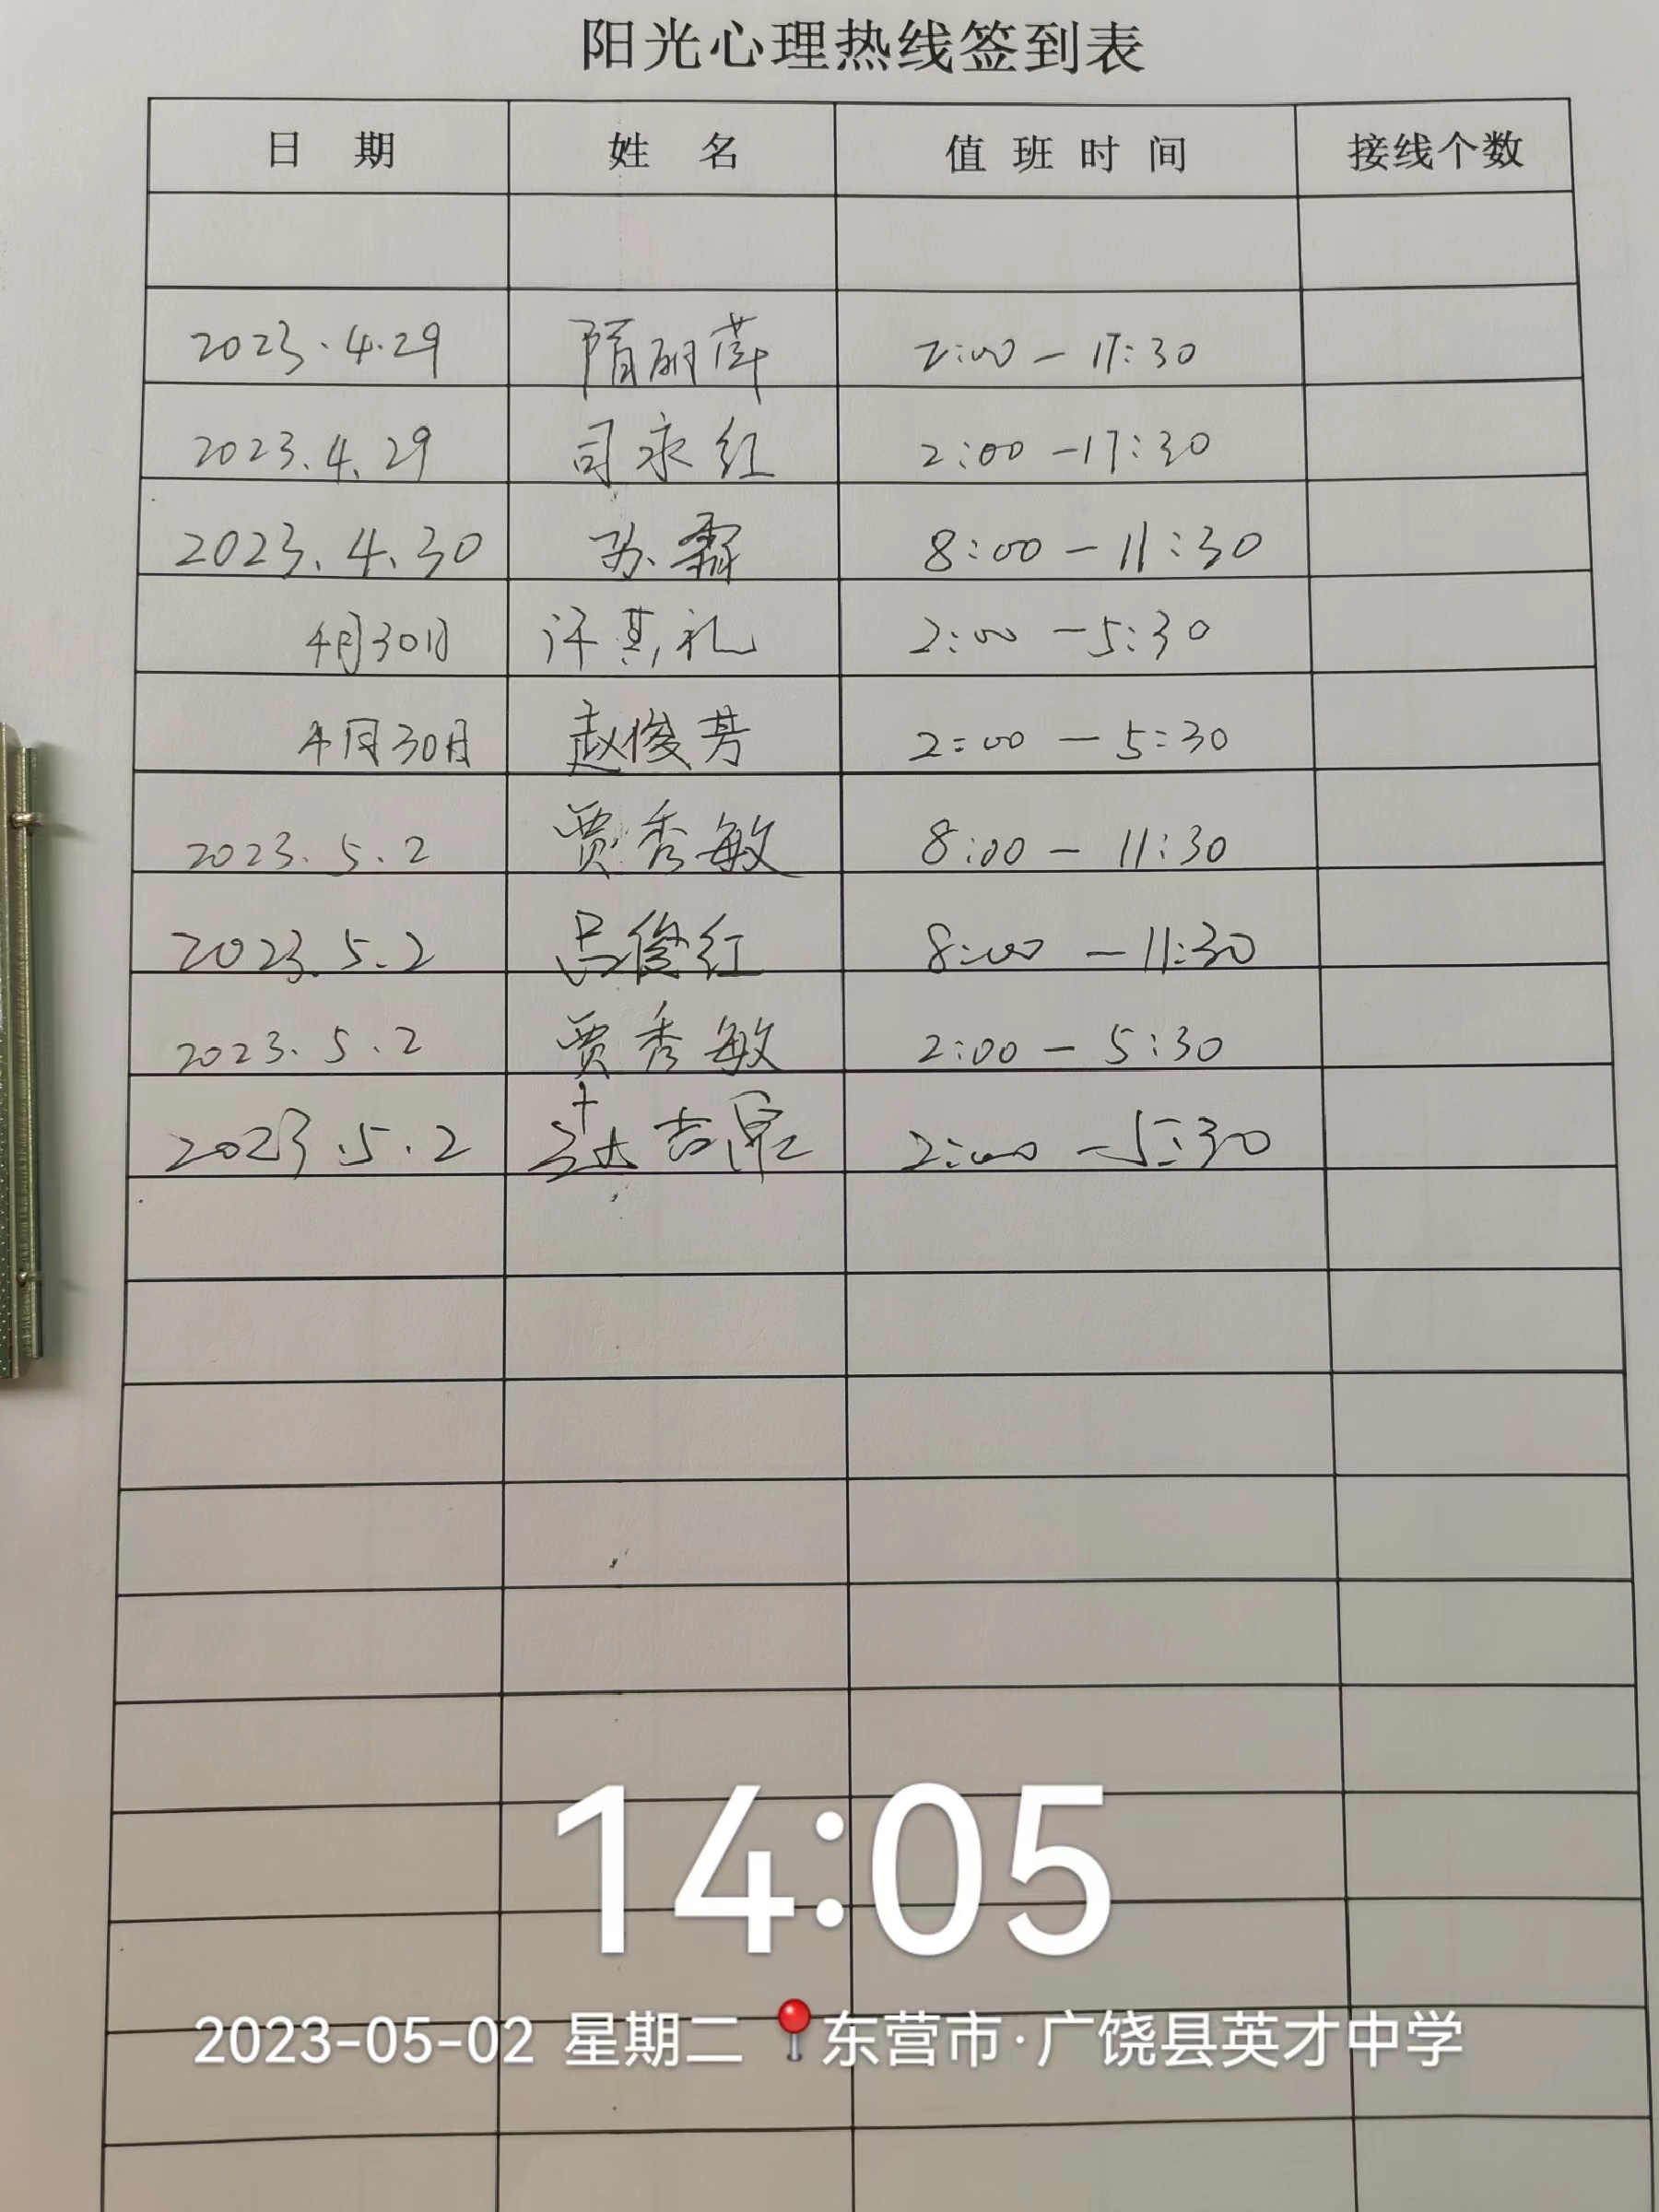 阳光心理热线签到表
日 期 姓 名 值 班 时 间 接线个数
2023.4.29 隋丽萍 2:00 — 17:30
2023.4.29 司永红 2:00 — 17:30
2023.4.30 苏霖 8:00 — 11:30
4月30日 许其礼 2:00 — 5:30
4月30日 赵俊芳 2:00 — 5:30
2023.5.2 贾秀敏 8:00 — 11:30
2023.5.2 吕俊红 8:00 — 11:30
2023.5.2 贾秀敏 2:00 — 5:30
2023.5.2 2:00 — 5:30
14:05
2023-05-02 星期二 东营市·广饶县英才中学